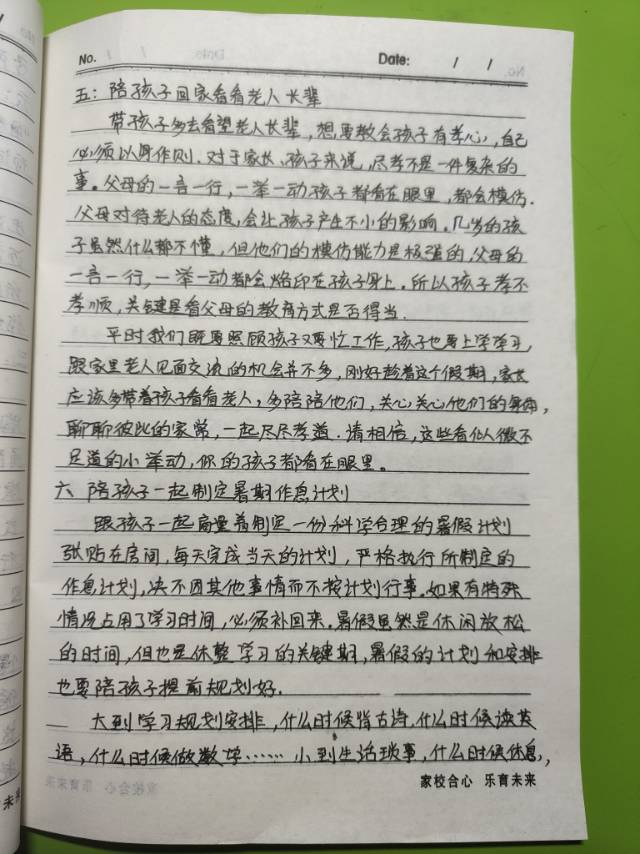 No.
Date: / /
五:陪孩子回家看看老人长辈
带孩子多去看望老人长辈,想要教会孩子有孝心,自己
必须以身作则。对于家长、孩子来说,尽孝不是一件复杂的
事。父母的一言一行,一举一动孩子都看在眼里,都会模仿.
父母对待老人的态度,会让孩子产生不小的影响。几岁的孩
子虽然什么都不懂,但他们的模仿能力是极强的,父母的
一言一行,一举一动都会烙印在孩子身上。所以孩子孝不
孝顺,关键是看父母的教育方式是否得当.
平时我们既要照顾孩子又要忙工作,孩子也要上学学习,
跟家里老人见面交流的机会并不多,刚好趁着这个假期,家长
应该多带着孩子看看老人,多陪陪他们,关心关心他们的身体,
聊聊彼此的家常,一起尽尽孝道.请相信,这些看似微不
足道的小举动,你的孩子都看在眼里。
六 陪孩子一起制定暑期作息计划
跟孩子一起商量着制定一份科学合理的暑假计划
张贴在房间,每天完成当天的计划,严格执行所制定的
作息计划,决不因其他事情而不按计划行事。如果有特殊
情况占用了学习时间,必须补回来。暑假虽然是休闲放松
的时间,但也是休整学习的关键期,暑假的计划和安排
也要陪孩子提前规划好.
大到学习规划安排,什么时候背古诗.什么时候读英
语,什么时候做数学……小到生活琐事,什么时候休息,
家校合心 乐育未来